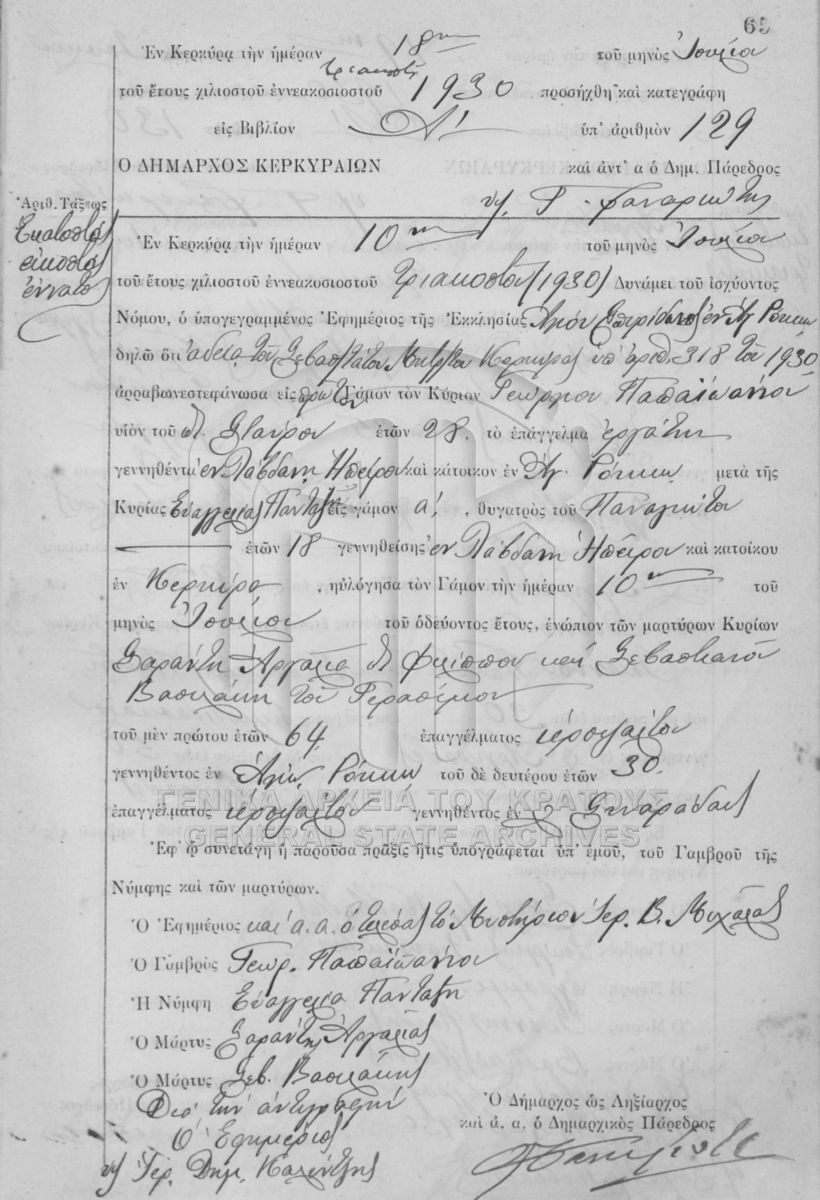 65
Ἐν Κερκύρᾳ τὴν ἡμέραν 18ην τοῦ μηνὸς Ἰουλίου
τριακοστοῦ
τοῦ ἔτους χιλιοστοῦ ἐννεακοσιοστοῦ 1930 προσήχθη καὶ κατεγράφη
εἰς Βιβλίον Α' ὑπ' ἀριθμὸν 129
Ο ΔΗΜΑΡΧΟΣ ΚΕΡΚΥΡΑΙΩΝ καὶ ἀντ' α ὁ Δημ. Πάρεδρος
Γ.
Ἀριθ. Τάξεως
Ἑκατοστὸς
εἰκοστὸς
ἔννατος
Ἐν Κερκύρᾳ τὴν ἡμέραν 10ην τοῦ μηνὸς Ἰουλίου
τοῦ ἔτους χιλιοστοῦ ἐννεακοσιοστοῦ τριακοστοῦ (1930) Δυνάμει τοῦ ἰσχύοντος
Νόμου, ὁ ὑπογεγραμμένος Ἐφημέριος τῆς Ἐκκλησίας Ἁγίου Σπυρίδωνος ἐν Ἁγ. Ρόκκῳ
δηλῶ ὅτι ἀδείᾳ τοῦ Σεβασμ/τάτου Μητρ/του Κερκύρας ὑπ' ἀριθ. 318 τοῦ 1930
ἀρραβωνεστεφάνωσα εἰς πρῶτον Γάμον τὸν Κύριον Γεώργιον Παπαϊωάννου
υἱὸν τοῦ Σταύρου ἐτῶν 28, τὸ ἐπάγγελμα ἐργάτην
γεννηθέντα ἐν Λάβδανη Ἠπείρου καὶ κάτοικον ἐν Ἁγ. Ρόκκῳ μετὰ τῆς
Κυρίας Εὐαγγελίας Πανταζῆ εἰς γάμον α', θυγατρὸς τοῦ Παναγιώτου
ἐτῶν 18 γεννηθείσης ἐν Λάβδανη Ἠπείρου καὶ κατοίκου
ἐν Κερκύρᾳ, ηὐλόγησα τὸν Γάμον τὴν ἡμέραν 10ην τοῦ
μηνὸς Ἰουλίου τοῦ ὁδεύοντος ἔτους, ἐνώπιον τῶν μαρτύρων Κυρίων
Σαράντη Ἀργαλιᾶ Φιλίππου καὶ Σεβαστιανοῦ
Βασιλάκη τοῦ Γερασίμου
τοῦ μὲν πρώτου ἐτῶν 64 ἐπαγγέλματος ἱεροψάλτου
γεννηθέντος ἐν Ἁγίῳ Ρόκκῳ τοῦ δὲ δευτέρου ἐτῶν 30.
ἐπαγγέλματος ἱεροψάλτου γεννηθέντος ἐν Σιναράδας
ΓΕΝΙΚΑ ΑΡΧΕΙΑ ΤΟΥ ΚΡΑΤΟΥΣ
GENERAL STATE ARCHIVES
Ἐφ' ᾧ συνετάγη ἡ παροῦσα πρᾶξις ἥτις ὑπογράφεται ὑπ' ἐμοῦ, τοῦ Γαμβροῦ τῆς
Νύμφης καὶ τῶν μαρτύρων.
Ὁ Ἐφημέριος καὶ ἀ. α. ὁ τελέσας τὸ Μυστήριον Ἱερ. Β. Μιχαλᾶς
Ὁ Γαμβρὸς Γεωρ. Παπαϊωάννου
Ἡ Νύμφη Εὐαγγελία Πανταζῆ
Ὁ Μάρτυς Σαράντης Ἀργαλιᾶς
Ὁ Μάρτυς Σεβ. Βασιλάκης
Διὰ τὴν ἀντιγραφήν
Ὁ Ἐφημέριος
Ἱερ. Δημ.
Ὁ Δήμαρχος ὡς Ληξίαρχος
καὶ ἀ. α. ὁ Δημαρχικὸς Πάρεδρος